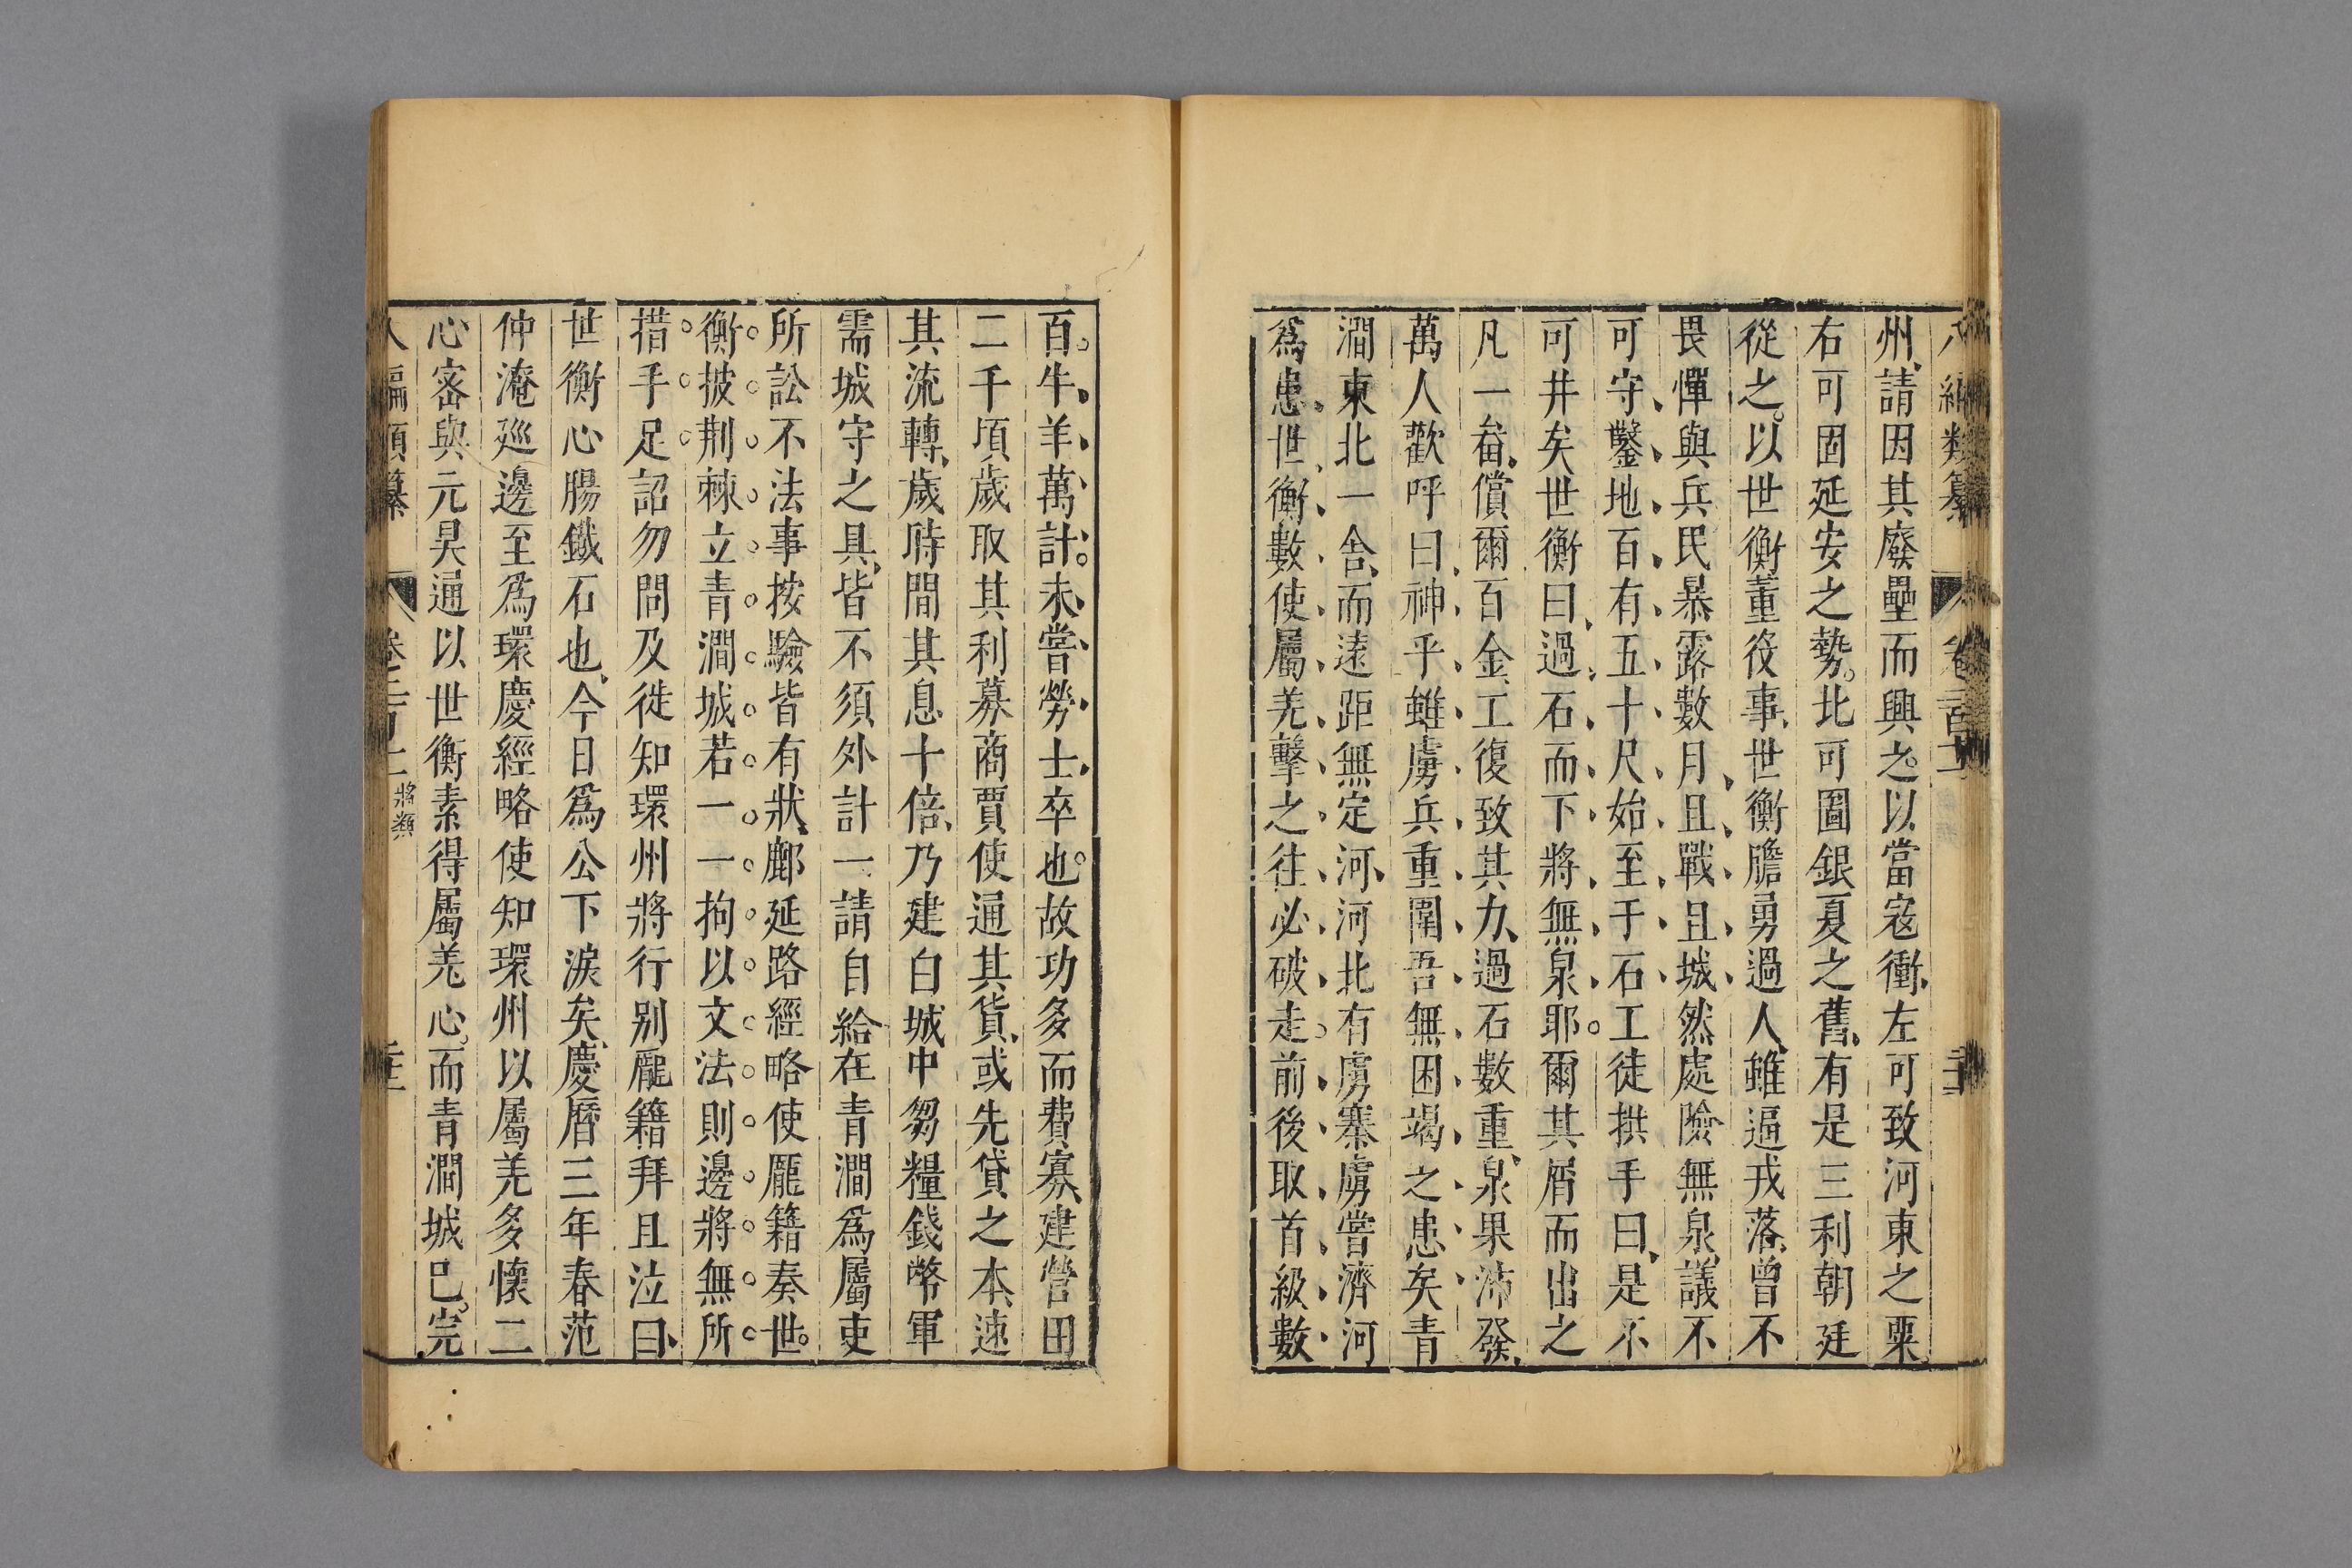 州請因其廢壘而興之以當寇衝左可致河東之粟
右可固延安之勢北可圖銀夏之舊有是三利朝廷
從之以世衡董役事世衡膽勇過人雖逼戎落曾不
畏憚與兵民暴露數月且戰且城然處險無泉議不
可守鑿地百有五十尺始至于石工徒拱手曰是不
可井矣世衡曰過石而下將無泉耶爾其屑而出之
凡一畚償爾百金工復致其力過石數重泉果沛發
萬人歡呼曰神乎雖虜兵重圍吾無困渴之患矣青
澗東北一舍而遠距無定河河北有虜寨虜嘗濟河
為患世衡數使屬羌擊之往必破走前後取首級數
百牛羊萬計未嘗勞士卒也故功多而費寡建營田
二千頃歲取其利募商賈使通其貨或先貸之本速
其流轉歲時間其息十倍乃建白城中芻糧錢幣軍
需城守之具皆不須外計一請自給在青澗為屬吏
所訟不法事按驗皆有狀鄜延路經略使龐籍奏世
衡披荆棘立青澗城若一一拘以文法則邊將無所
措手足詔勿問及徙知環州將行别龐籍拜且泣曰
世衡心腸鐵石也今日為公下淚矣慶曆三年春范
仲淹廵邊至為環慶經略使知環州以屬羌多懷二
心密與元昊通以世衡素得屬羌心而青澗城已完